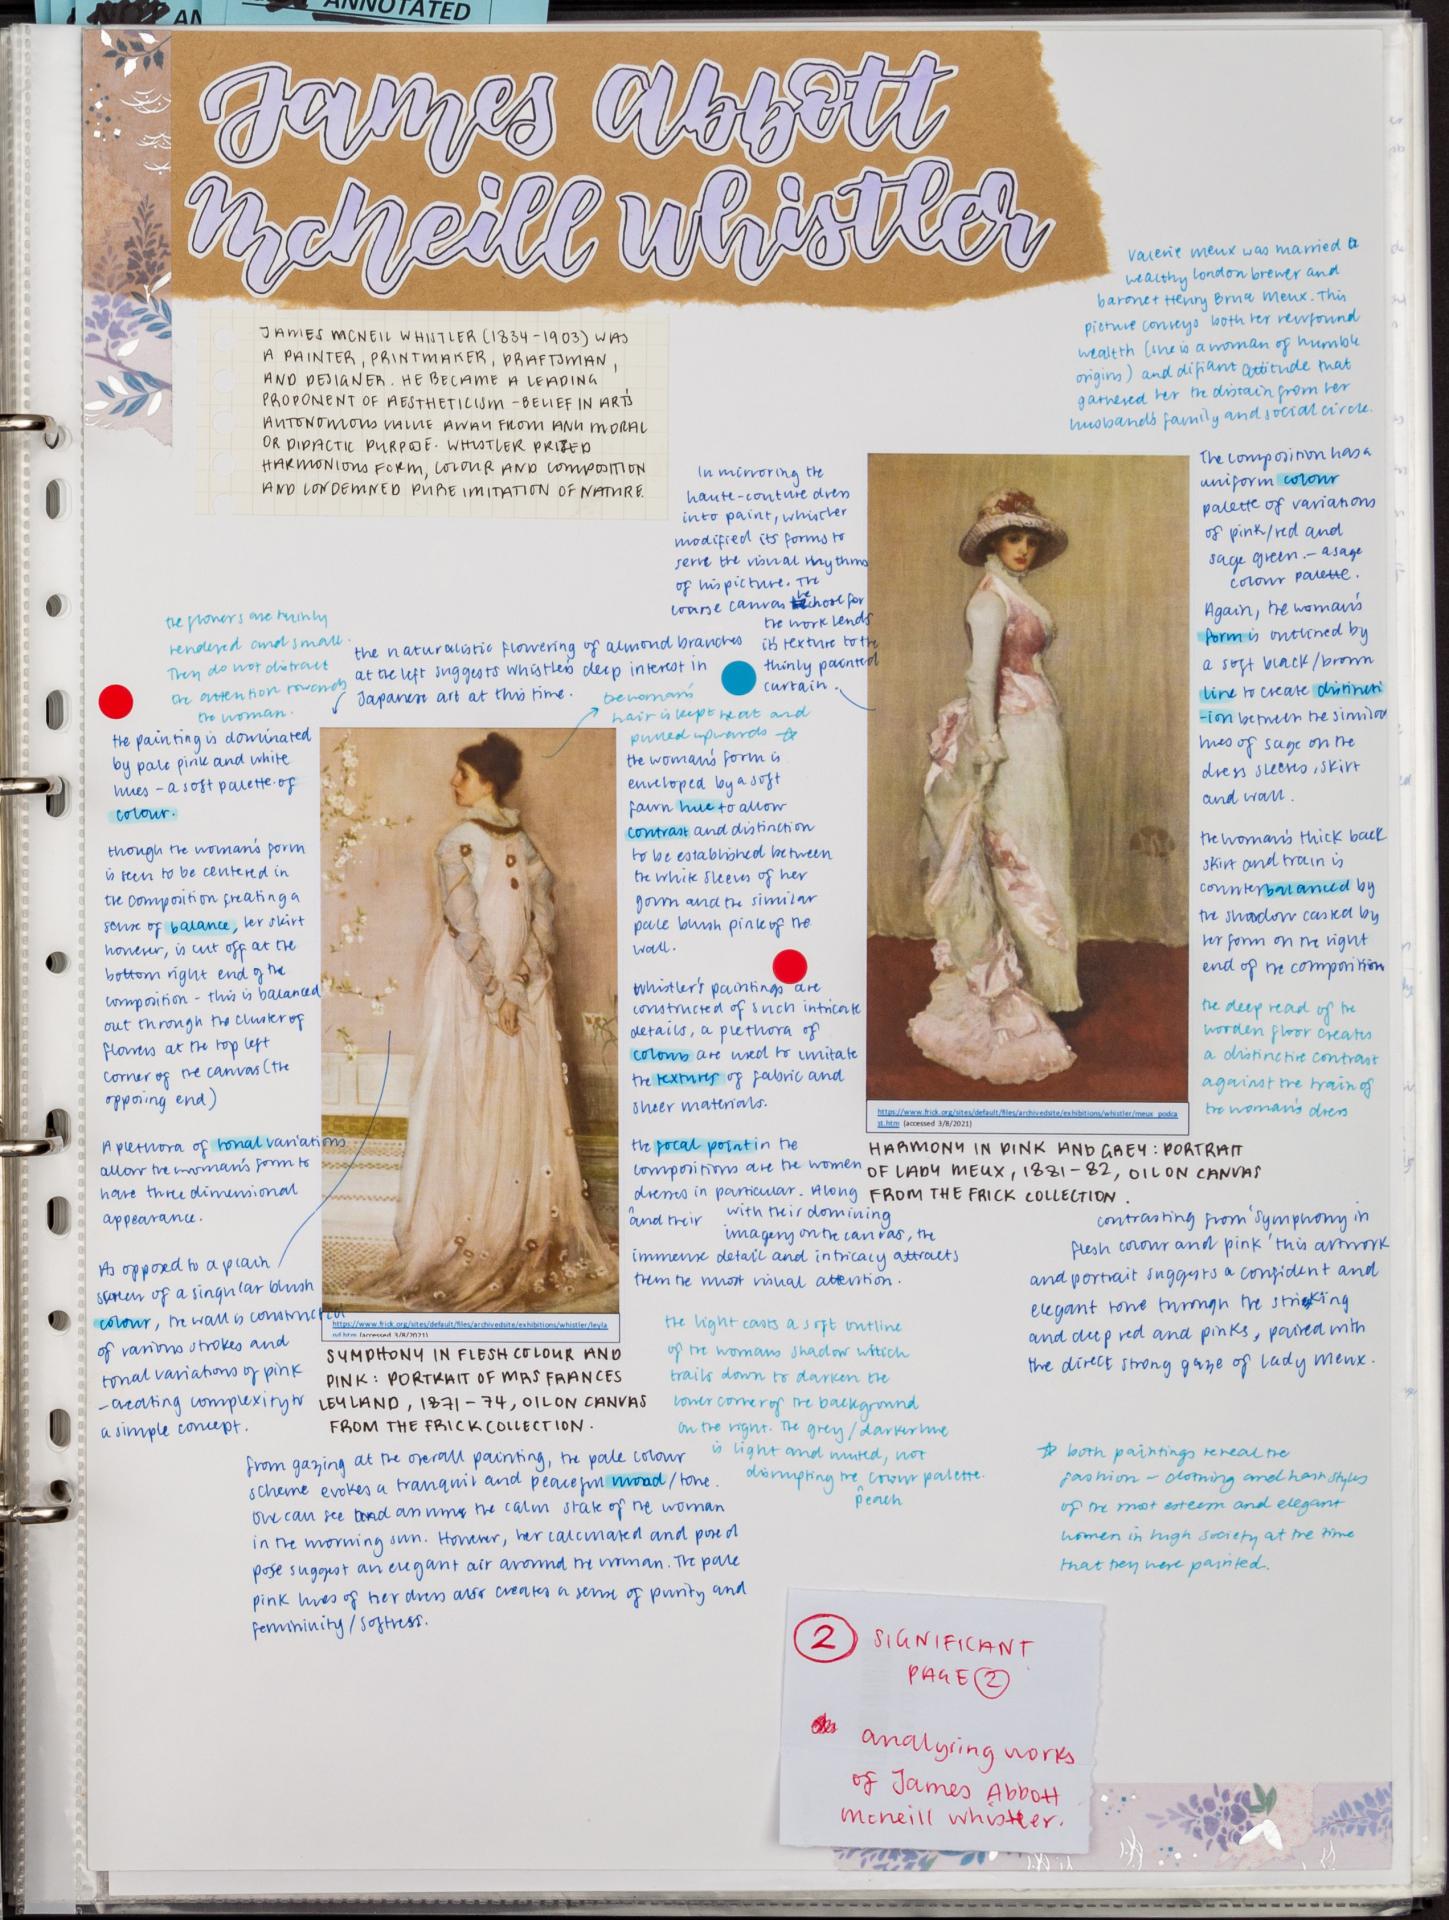 ANNOTATED
James Abbott
McNeill Whistler
JAMES MCNEIL WHISTLER (1834-1903) WAS
A PAINTER, PRINTMAKER, DRAFTSMAN,
AND DESIGNER. HE BECAME A LEADING
PROPONENT OF AESTHETICISM - BELIEF IN ART'S
AUTONOMOUS VALUE AWAY FROM ANY MORAL
OR DIDACTIC PURPOSE. WHISTLER PRIZED
HARMONIOUS FORM, COLOUR AND COMPOSITION
AND CONDEMNED PURE IMITATION OF NATURE.
Valerie Meux was married to
wealthy london brewer and
baronet Henry Bruce Meux. This
picture conveys both her newfound
wealth (she is a woman of humble
origins) and difiant attitude that
gathered her the distain from her
husband's family and social circle.
In mirroring the
haute-couture dress
into paint, whistler
modified its forms to
serve the visual rhythms
of his picture. The
coarse canvas he chose for
the work lends
its texture to the
thinly painted
curtain.
The composition has a
uniform colour
palette of variations
of pink/red and
sage green. - a sage
colour palette.
Again, the woman's
form is outlined by
a soft black/brown
line to create distincti
-ion between the similar
hues of sage on the
dress sleeves, skirt
and wall.
the woman's thick back
skirt and train is
counterbalanced by
the shadow casted by
her form on the right
end of the composition
the deep read of the
wooden floor creates
a distinctive contrast
against the train of
the woman's dress
the flowers are thinly
rendered and small.
They do not distract
the attention towards
the woman.
the naturalistic flowering of almond branches
at the left suggests whistler's deep interest in
Japanese art at this time.
the woman's
hair is kept neat and
pulled upwards ☆
the painting is dominated
by pale pink and white
hues - a soft palette of
colour.
though the woman's form
is seen to be centered in
the composition creating a
sense of balance, her skirt
however, is cut off at the
bottom right end of the
composition - this is balanced
out through the cluster of
flowers at the top left
corner of the canvas (the
opposing end)
A plethora of tonal variations
allow the woman's form to
have three dimensional
appearance.
As opposed to a plain
of a singular blush
colour, the wall is constructed
of various strokes and
tonal variations of pink
- creating complexity to
a simple concept.
the woman's form is
enveloped by a soft
fawn hue to allow
contrast and distinction
to be established between
the white sleeves of her
gown and the similar
pale blush pink of the
wall.
Whistler's paintings are
constructed of such intricate
details, a plethora of
colours are used to imitate
the textures of fabric and
sheer materials.
the focal point in the
compositions are the women
and their dresses in particular. Along
with their domining
imagery on the canvas, the
immense detail and intricacy attracts
them the most visual attention.
https://www.frick.org/sites/default/files/archivedsite/exhibitions/whistler/meux_podca
st.htm (accessed 3/8/2021)
HARMONY IN PINK AND GREY: PORTRAIT
OF LADY MEUX, 1881-82, OIL ON CANVAS
FROM THE FRICK COLLECTION.
contrasting from 'Symphony in
flesh colour and pink' this artwork
and portrait suggests a confident and
elegant tone through the striking
and deep red and pinks, paired with
the direct strong gaze of Lady Meux.
https://www.frick.org/sites/default/files/archivedsite/exhibitions/whistler/leyla
nd.htm (accessed 3/8/2021)
SYMPHONY IN FLESH COLOUR AND
PINK: PORTRAIT OF MRS FRANCES
LEYLAND, 1871-74, OIL ON CANVAS
FROM THE FRICK COLLECTION.
the light casts a soft outline
of the womans shadow which
trails down to darken the
lower corner of the background
on the right. The grey/darker hue
is light and muted, not
disrupting the peach colour palette.
From gazing at the overall painting, the pale colour
scheme evokes a tranquil and peaceful mood/tone.
One can see the calm state of the woman
in the morning sun. However, her calculated and posed
pose suggest an elegant air around the woman. The pale
pink hues of her dress also creates a sense of purity and
femininity/softness.
☆ both paintings reveal the
fashion - clothing and hair styles
of the most esteem and elegant
women in high society at the time
that they were painted.
2 SIGNIFICANT
PAGE 2
analysing works
of James Abbott
McNeill Whistler.